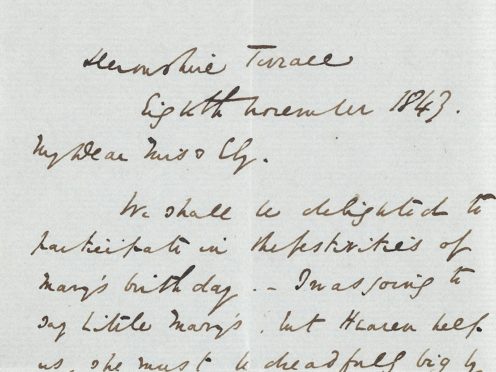 Devonshire Terrace
Eighth November 1843.
My Dear Miss Ely.
We shall be delighted to
participate in the festivities of
Mary's birthday. – I was going to
say little Mary's, but Heaven help
us, she must be dreadfully big by